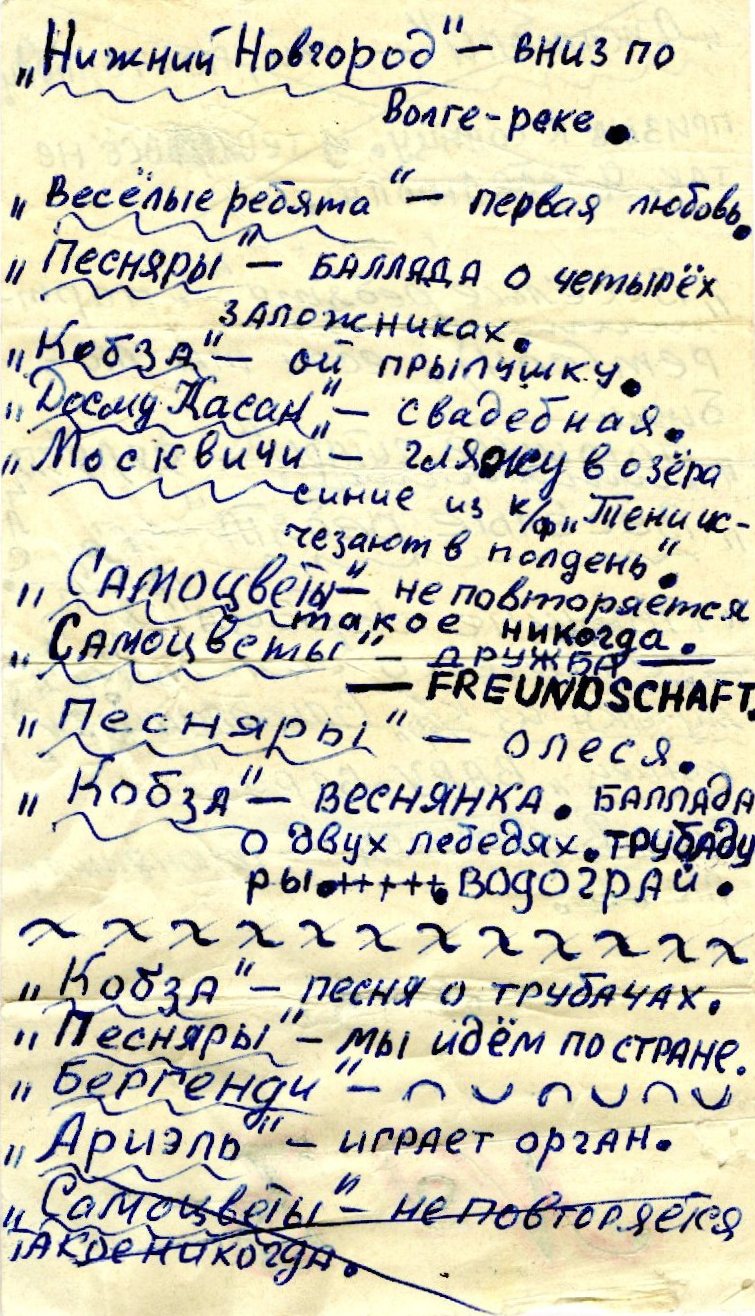 „Нижний Новгород" – вниз по
Волге-реке.
„Весёлые ребята" – первая любовь.
„Песняры" – баллада о четырёх
заложниках.
„Кобза" – ой прылушку.
„Досму Касан" – свадебная.
„Москвичи" – гляжу в озёра
синие из к/ф „Тени ис-
чезают в полдень".
„Самоцветы" – не повторяется
такое никогда.
„Самоцветы" – ДРУЖБА —
— FREUNDSCHAFT.
„Песняры" – Олеся.
„Кобза" – веснянка. Баллада
о двух лебедях. Трубаду
ры. +++++. Водограй.
„Кобза" – песня о трубачах.
„Песняры" – мы идём по стране.
„Бергенди" –
„Ариэль" – играет орган.
„Самоцветы" – не повторяется
такое никогда.